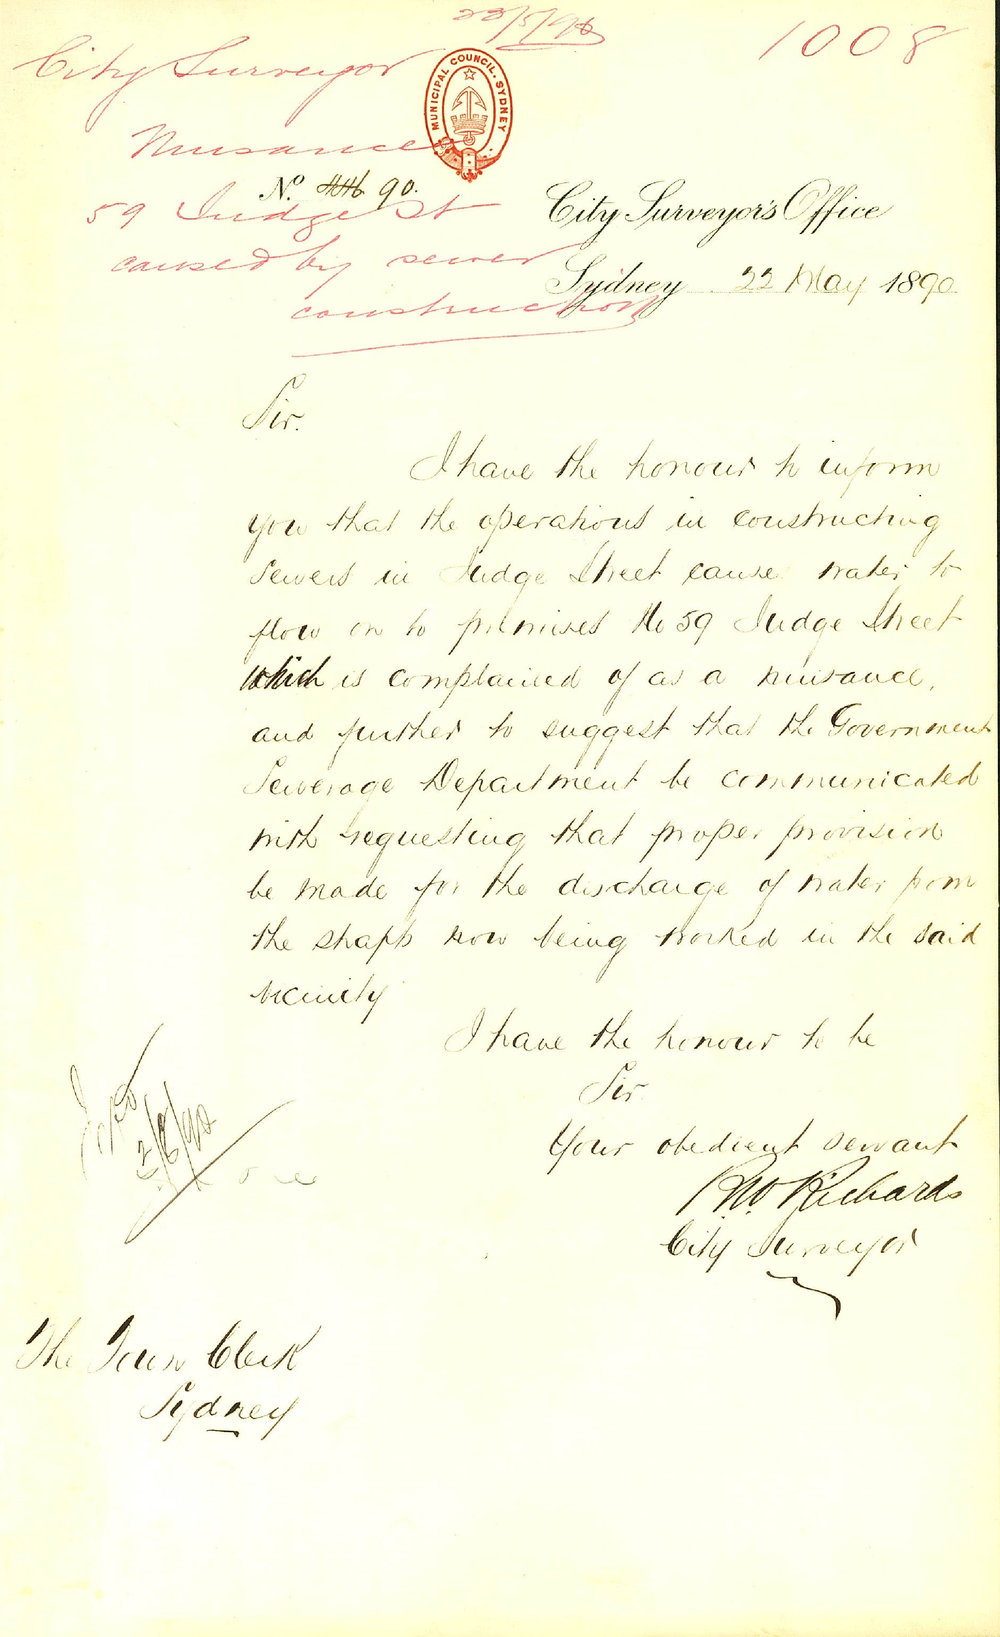 22/5/90
1008
City Surveyor
MUNICIPAL COUNCIL. SYDNEY
Nuisance
No. 90.
59 Judge St
caused by sewer
construction
City Surveyor's Office
Sydney 22 May 1890
Sir.
I have the honour to inform
you that the operations in constructing
sewers in Judge Street cause water to
flow on to premises No 59 Judge Street
which is complained of as a nuisance,
and further to suggest that the Government
Sewerage Department be communicated
with requesting that proper provision
be made for the discharge of water from
the shafts now being worked in the said
vicinity
I have the honour to be
Sir
Your obedient servant
R.W. Richards
City Surveyor
2/6/90
The Town Clerk
Sydney